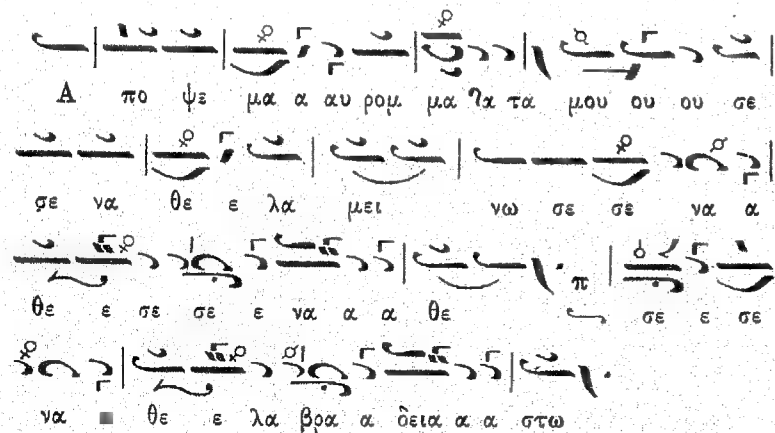 Α πο ψε μα α αυ ρομ μα λα τα μου ου ου σε
σε να θε ε λα μει νω σε σε να α
θε ε σε σε ε να α α θε π σε ε σε
να θε ε λα βρα α δεια α α στω